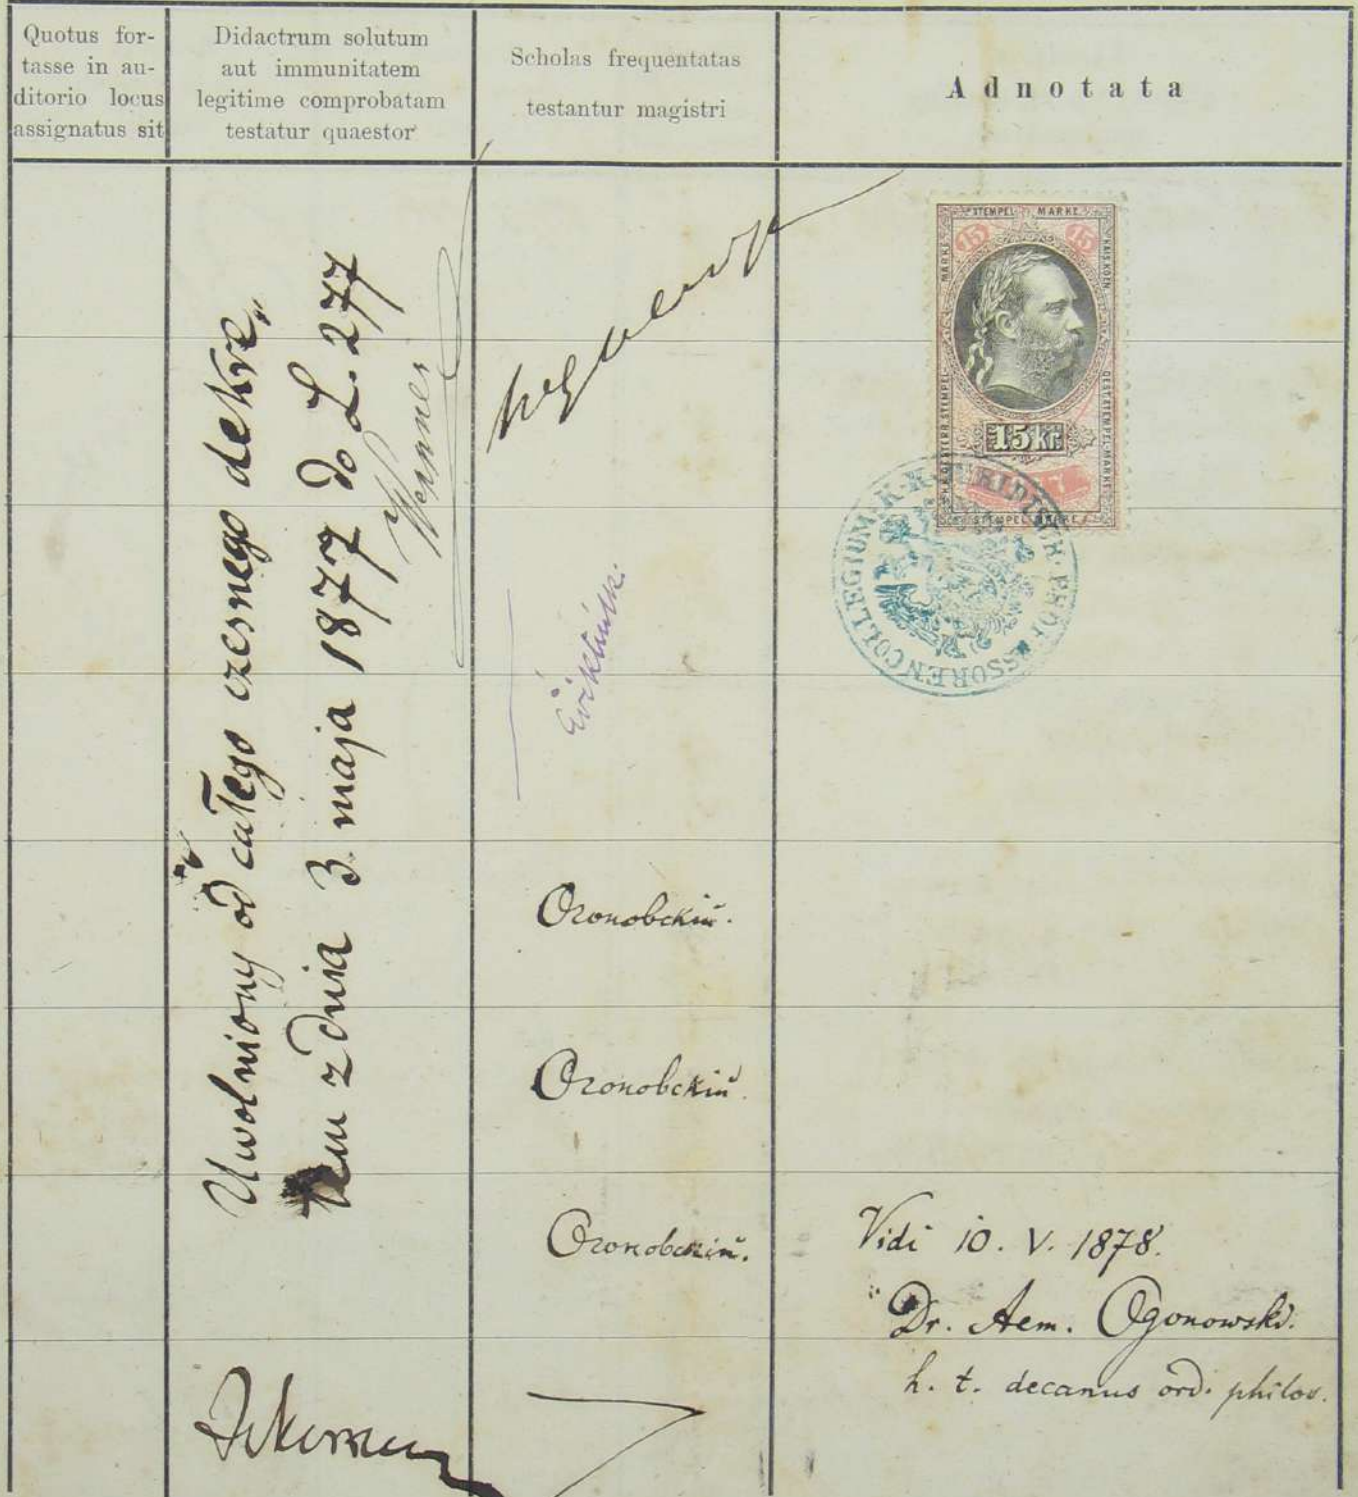 Quotus for-
tasse in au-
ditorio locus
assignatus sit
Didactrum solutum
aut immunitatem
legitime comprobatam
testatur quaestor
Scholas frequentatas
testantur magistri
Adnotata
Uwolniony od całego czesnego dekre„
tem z dnia 3 maja 1877 do L. 277
Огоновскій.
Огоновскій.
Огоновскій.
STEMPEL MARKE
15 15
15 kr.
STEMPEL MARKE
PROFESSOREN COLLEGIUM
Vidi 10. V. 1878.
Dr. Aem. Ogonowski.
h. t. decanus ord. philos.